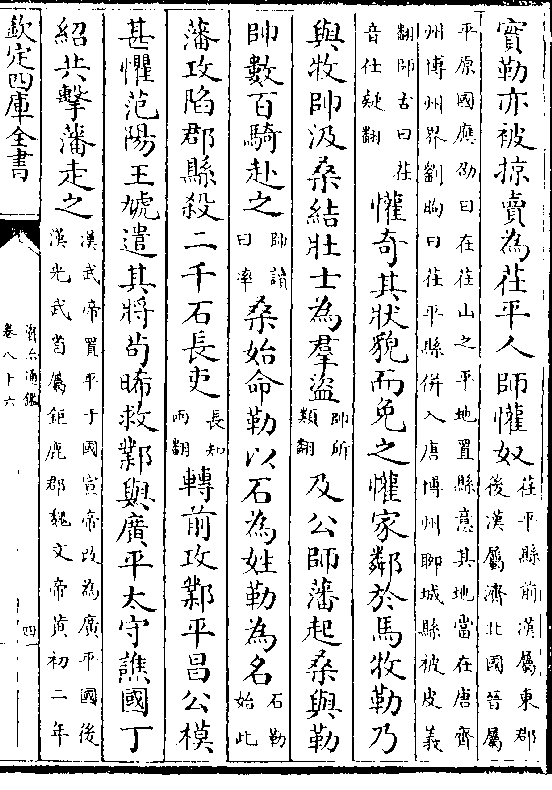 實勒亦被掠賣為茌平人師懽奴茌平縣前漢屬東郡後漢屬濟北國晉屬
平原國應劭曰在茌山之平地置縣意其地當在唐齊州博州界劉昫曰茌平縣併入唐博州聊城縣被皮義
翻師古曰茌音仕疑翻懽奇其狀貌而免之懽家鄰於馬牧勒乃
與牧帥汲桑結壯士為羣盜帥所類翻及公師藩起桑與勒
帥數百騎赴之帥讀曰率桑始命勒以石為姓勒為名石勒始此
藩攻陷郡縣殺二千石長吏長知兩翻轉前攻鄴平昌公模
甚懼范陽王虓遣其將苟晞救鄴與廣平太守譙國丁
紹共擊藩走之漢武帝置平于國宣帝改為廣平國後漢光武省屬鉅鹿郡魏文帝黃初二年
欽定四庫全書
資治通鑑
卷八十六
四